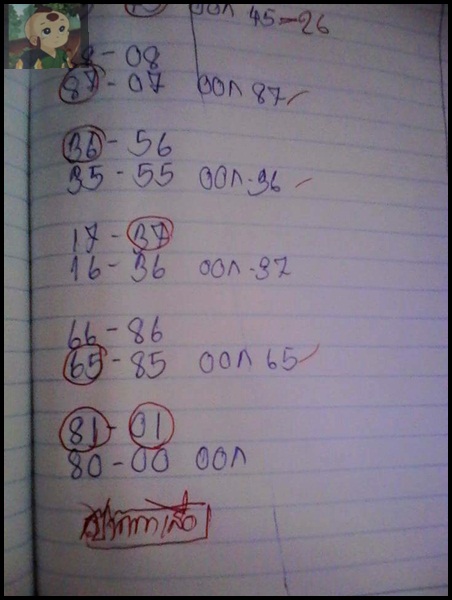 ออก 45-26
88-08
87-07 ออก 87
36-56
35-55 ออก-36
17-37
16-36 ออก-37
66-86
65-85 ออก 65
81-01
80-00 ออก